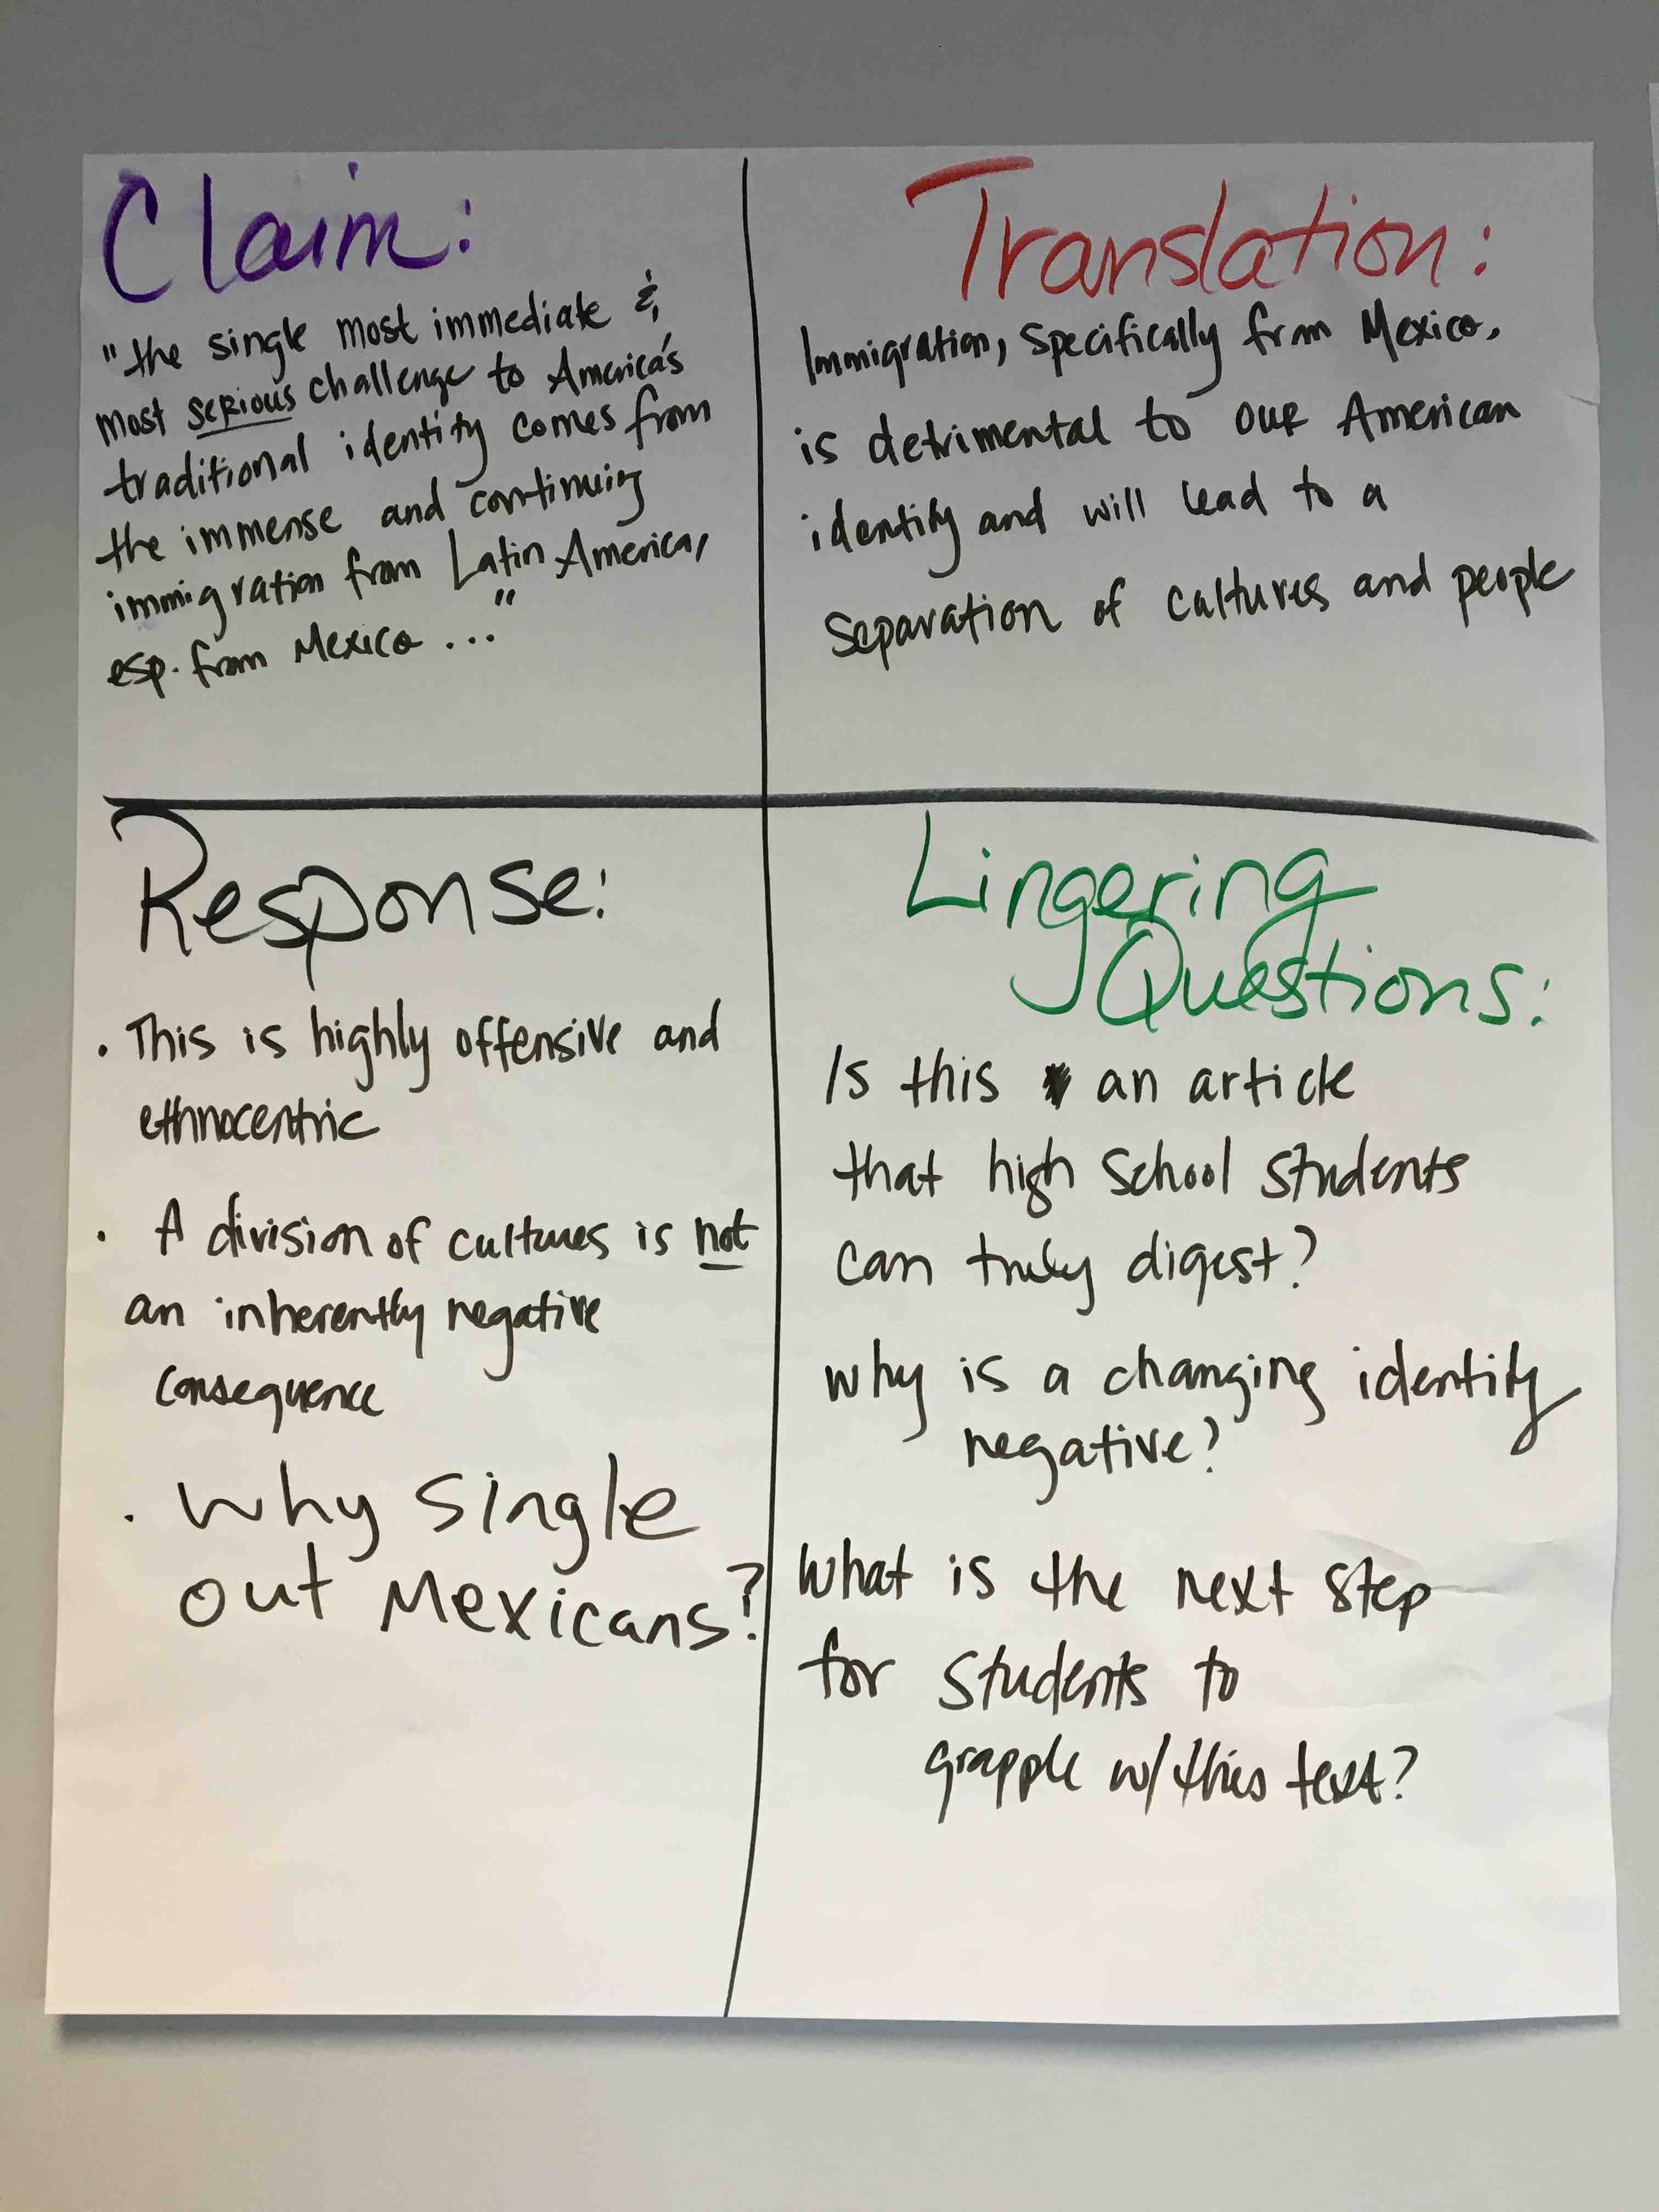 Claim:
"the single most immediate &
most serious challenge to America's
traditional identity comes from
the immense and continuing
immigration from Latin America,
esp. from Mexico ..."
Translation:
Immigration, specifically from Mexico,
is detrimental to our American
identity and will lead to a
separation of cultures and people
Response:
· This is highly offensive and
ethnocentric
· A division of cultures is not
an inherently negative
consequence
· Why single
out Mexicans?
Lingering
Questions:
Is this an article
that high school students
can truly digest?
Why is a changing identity
negative?
What is the next step
for students to
grapple w/ this text?